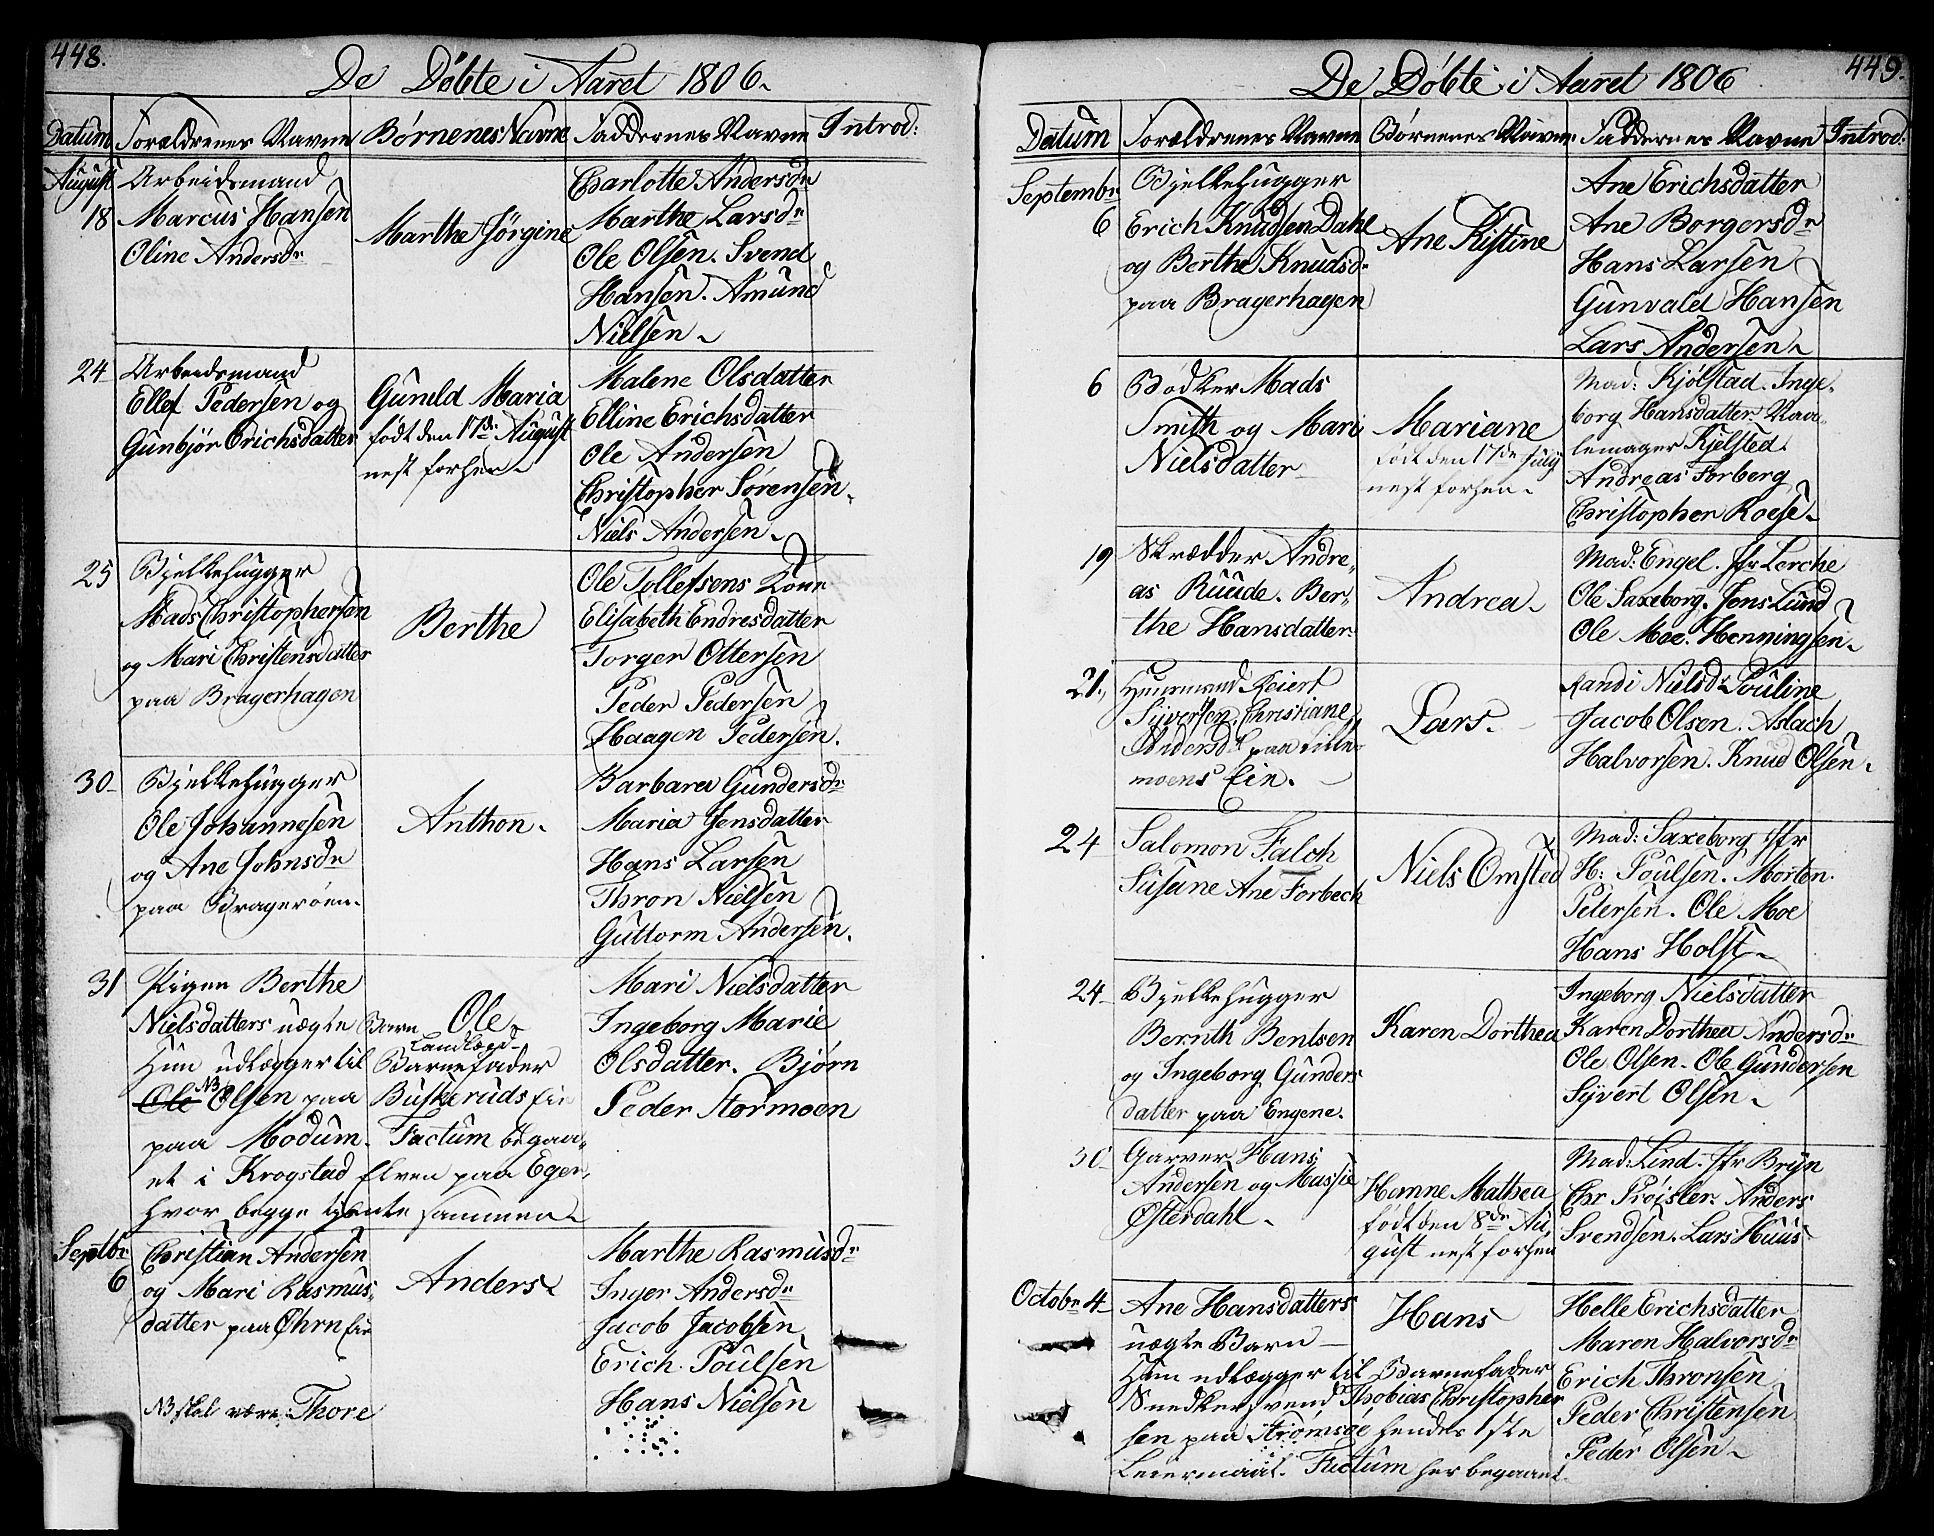 448.
De Døbte i Aaret 1806.
Datum Forældrenes Navne Børnenes Navne Faddernes Navne Introd:
August 18
Arbeidsmand
Marcus Hansen
Oline Andersdr
Marthe Jørgine
Charlotte Andersdr
Marthe Larsdr
Ole Olsen. Svend
Hansen. Amund
Nielsen
24
Arbeidsmand
Ellef Pedersen og
Gunbjör Erichsdatter
Guneld Maria
født den 17de August
nest forhen
Malene Olsdatter
Elline Erichsdatter
Ole Andersen
Christopher Sørensen
Niels Andersen
25
Bjelkehugger
Mads Christophersen
og Mari Christensdatter
paa Bragerhagen
Berthe
Ole Tollefsens Kone
Elisabeth Endresdatter
Torger Ottersen
Peder Pedersen
Haagen Pedersen.
30
Bjelkehugger
Ole Johannesen
og Ane Johnsdr
paa Bragerøen
Anthon
Barbara Gundersdr
Maria Jensdatter
Hans Larsen
Thron Nielsen
Guttorm Andersen.
31
Pigen Berthe
Nielsdatters uægte Barn
Hun udlægger til Barnefader
Ole NB Olsen paa Buskeruds Eie
paa Modum. Factum begaa-
et i Krogstad Elven paa Eger,
hvor begge tjente sammen
Ole
Landværd
Mari Nielsdatter
Ingeborg Marie
Olsdatter. Bjørn
Peder Stormoen
Septbr 6
Christian Andersen
og Mari Rasmus-
datter paa Øhrn Eie
NB skal være: Thore
Anders
Marthe Rasmusdr
Inger Andersdr
Jacob Jacobsen
Erich Poulsen
Hans Nielsen
449.
De Døbte i Aaret 1806
Datum Forældrenes Navne Børnenes Navne Faddernes Navne Introd:
Septembr 6
Bjelkehugger
Erich Knudsen Dahl
og Berthe Knudsdr
paa Bragerhagen
Ane Kistine
Ane Erichsdatter
Ane Borgersdr
Hans Larsen
Gunvald Hansen
Lars Andersen
6
Bødker Mads
Smith og Mari
Nielsdatter
Mariane
født den 17de July
nest forhen
Mad: Kjølstad. Inge-
borg Hansdatter
lemager Kjelsted.
Andreas Forberg
Christopher Roese
19
Skrædder Andre-
as Ruude. Ber-
the Hansdatter
Andrea
Mad: Engel. Jfr Lerche
Ole Saxeborg. Jens Lund
Ole Moe. Henningsen
21.
Huusmand Reiert
Syversen. Christiane
Andersdr paa Lille-
moens Eie.
Lars.
Randi Nielsdr Pouline
Jacob Olsen. Aslach
Halvorsen. Knud Olsen
24
Salomon Falch
Susane Ane Forbech
Niels Omsted
Mad: Saxeborg Jfr
H: Poulsen. Morten
Petersen. Ole Moe
Hans Holst
24
Bjelkehugger
Bernth Bentsen
og Ingeborg Gunders
datter paa Engene.
Karen Dorthea
Ingeborg Nielsdatter
Karen Dorthea Andersdr
Ole Olsen. Ole Gundersen
Syvert Olsen
30
Garver Hans
Andersen og Massie
Østerdahl
Hanne Mathea
født den 8de Au
gust nest forhen
Mad: Lind. Jfr Bryn
Chr Prøisler. Anders
Svendsen. Lars Huus
Octobr 4
Ane Hansdatters
uægte Barn
Hun udlægger til Barnefader
Snedkersvend Thobias Christopher
sen paa Strømsøe hendes 1ste
Leiermaal. Factum her begaaet.
Hans
Helle Erichsdatter
Maren Halvorsdr
Erich Thronsen
Peder Christensen
Peder Olsen